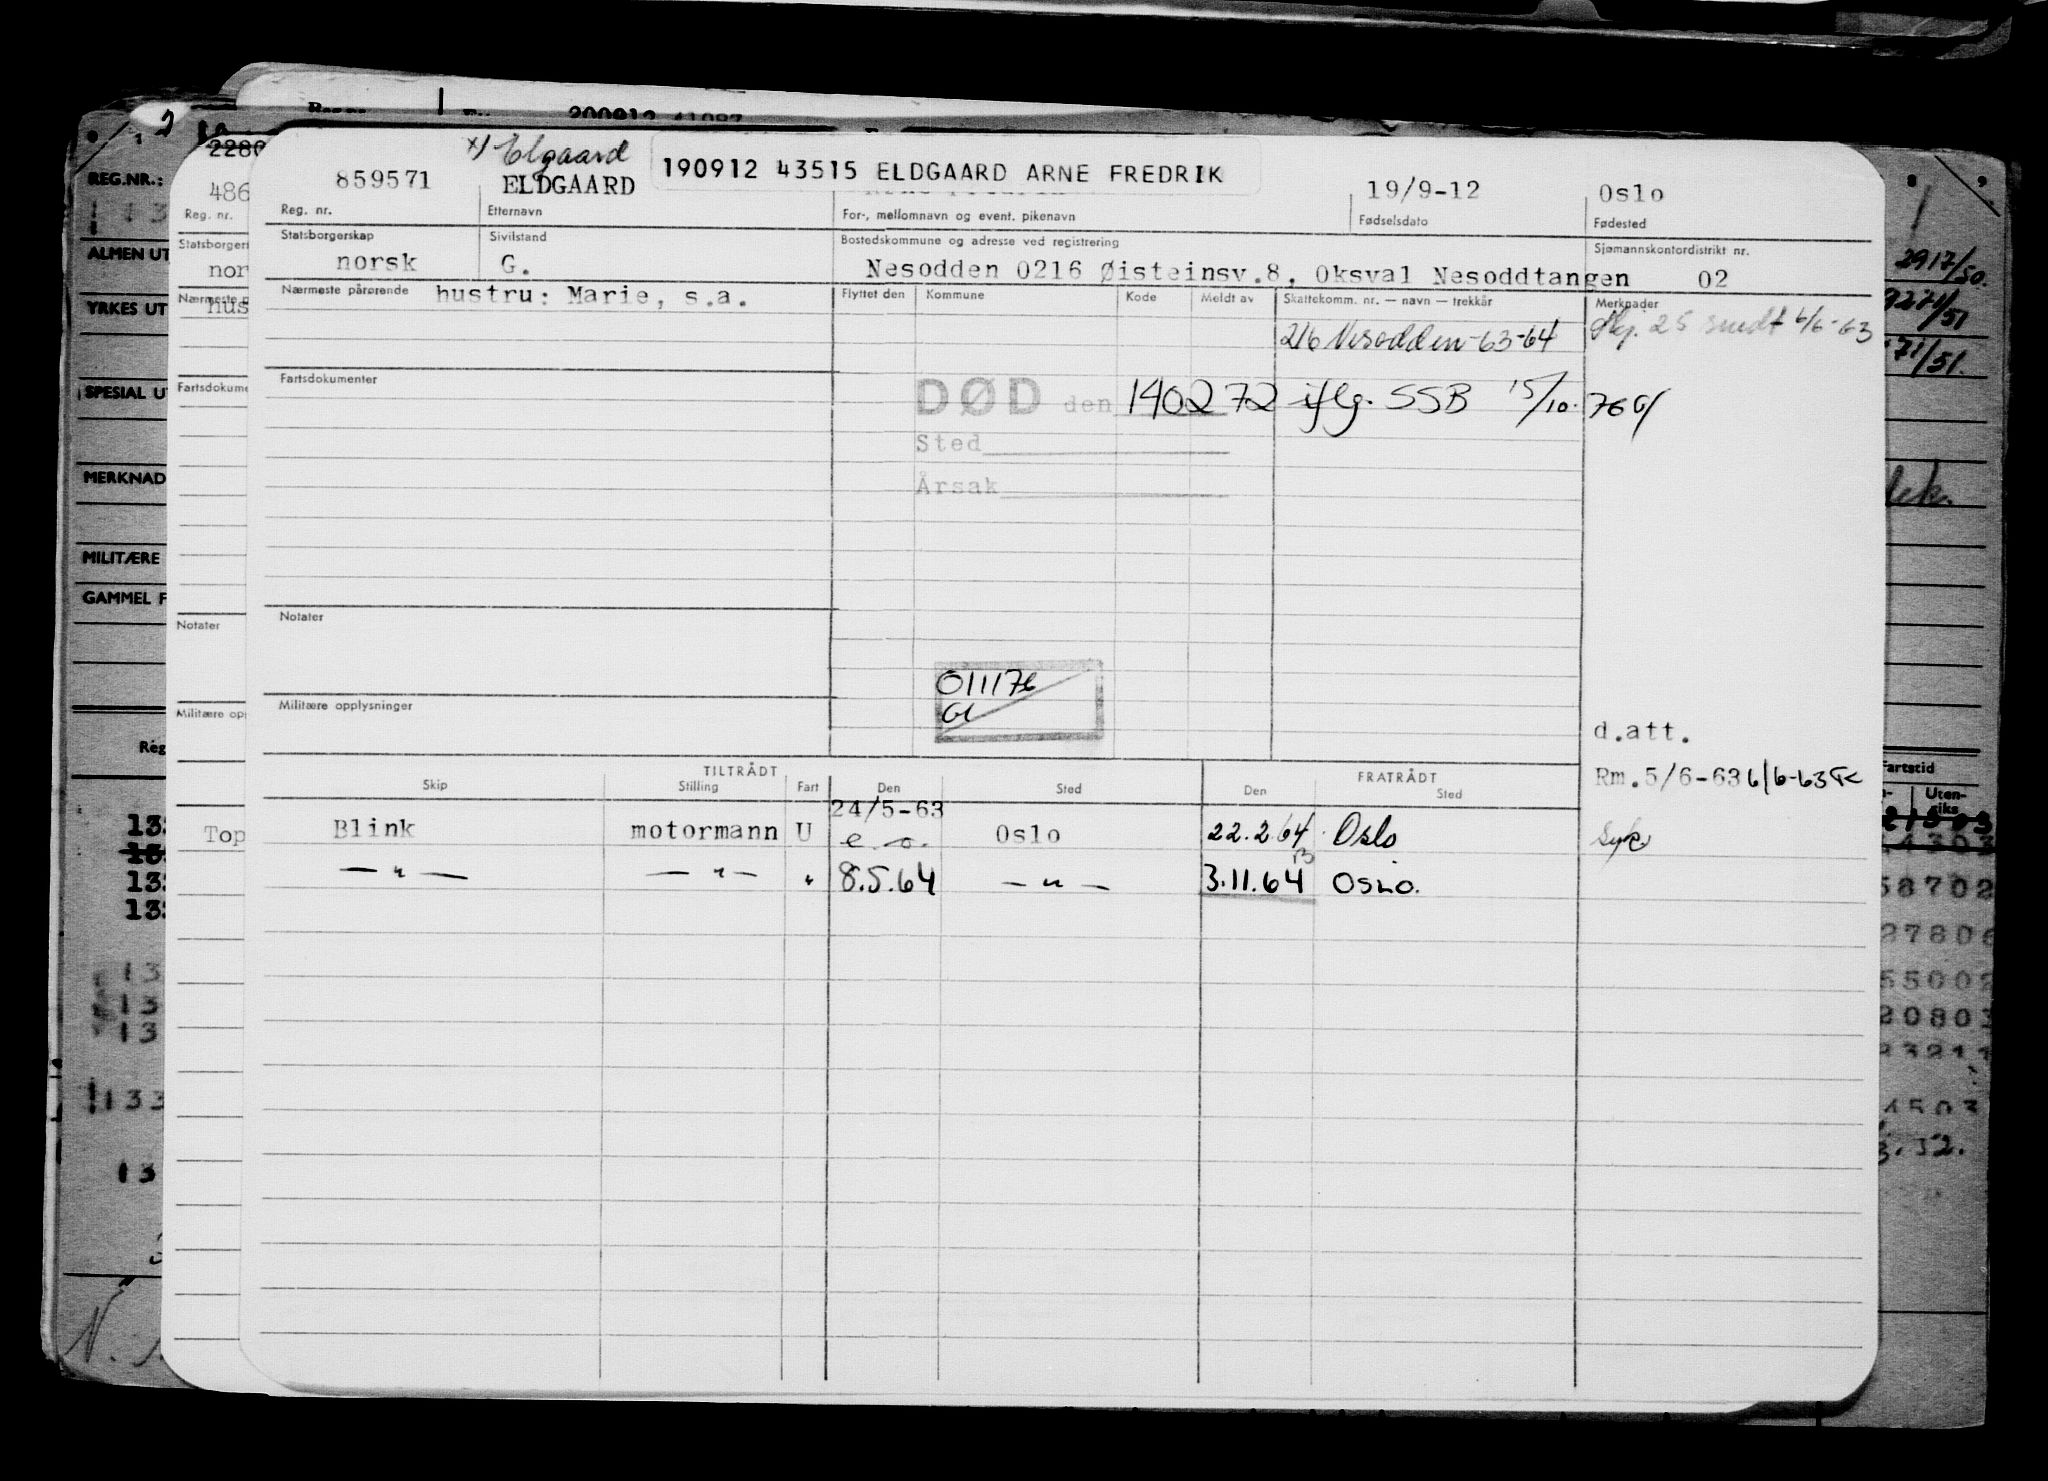 x) Elgaard
859571 ELDGAARD 190912 43515 ELDGAARD ARNE FREDRIK 19/9-12 Oslo
Reg. nr. Etternavn For-, mellomnavn og event. pikenavn Fødselsdato Fødested
Statsborgerskap Sivilstand Bostedskommune og adresse ved registrering Sjømannskontordistrikt nr.
norsk G. Nesodden 0216 Øisteinsv.8, Oksval Nesoddtangen 02
Nærmeste pårørende hustru: Marie, s.a. Flyttet den Kommune Kode Meldt av Skattekomm. nr. — navn — trekkår Merknader
216 Nesodden-63-64 25 sendt 6/6-63
Fartsdokumenter
DØD den 140272 iflg. SSB 15/10-76
Sted
Årsak
Notater
011176
Militære opplysninger
d.att.
Rm.5/6-63 6/6-63
TILTRÅDT FRATRÅDT
Skip Stilling Fart Den Sted Den Sted
24/5-63
Blink motormann U e.o. Oslo 22.2.64 Oslo Syk
— " — — " — " 8.5.64 — " — 3.11.64 OSLO.
REG.NR.:
ALMEN UT
YRKES UT
SPESIAL UT
MERKNAD
MILITÆRE
GAMMEL F
2280
486
Reg. nr.
Statsborger
nor
Nærmeste
hus
Fartsdokume
Notater
Militære op
Top
200912 41087
2917/50.
Fartstid
Uten-
riks
58702
27806
55002
20803